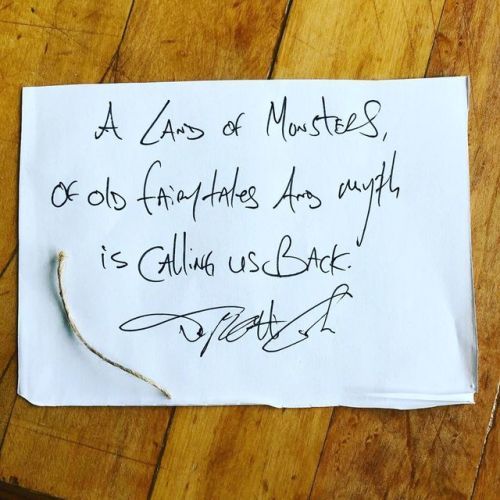 A Land of Monsters,
of old fairytales And myth
is Calling us Back.